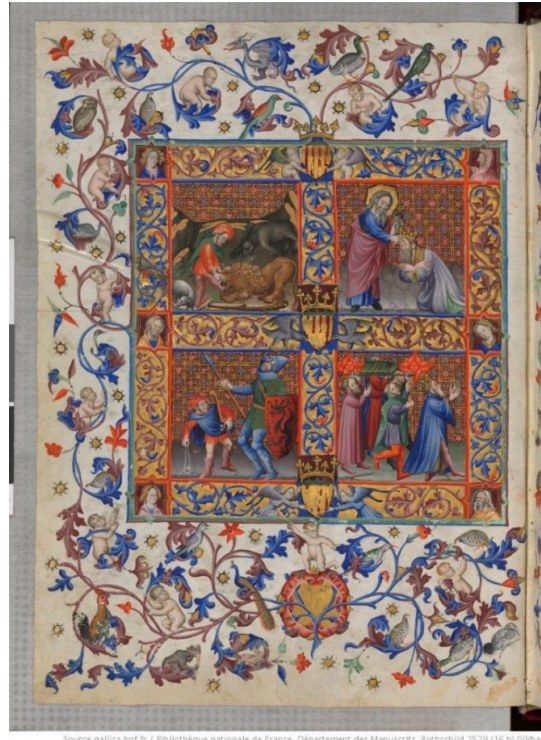 Source gallica.bnf.fr / Bibliothèque nationale de France. Département des Manuscrits. Rothschild 2529 (16 b)